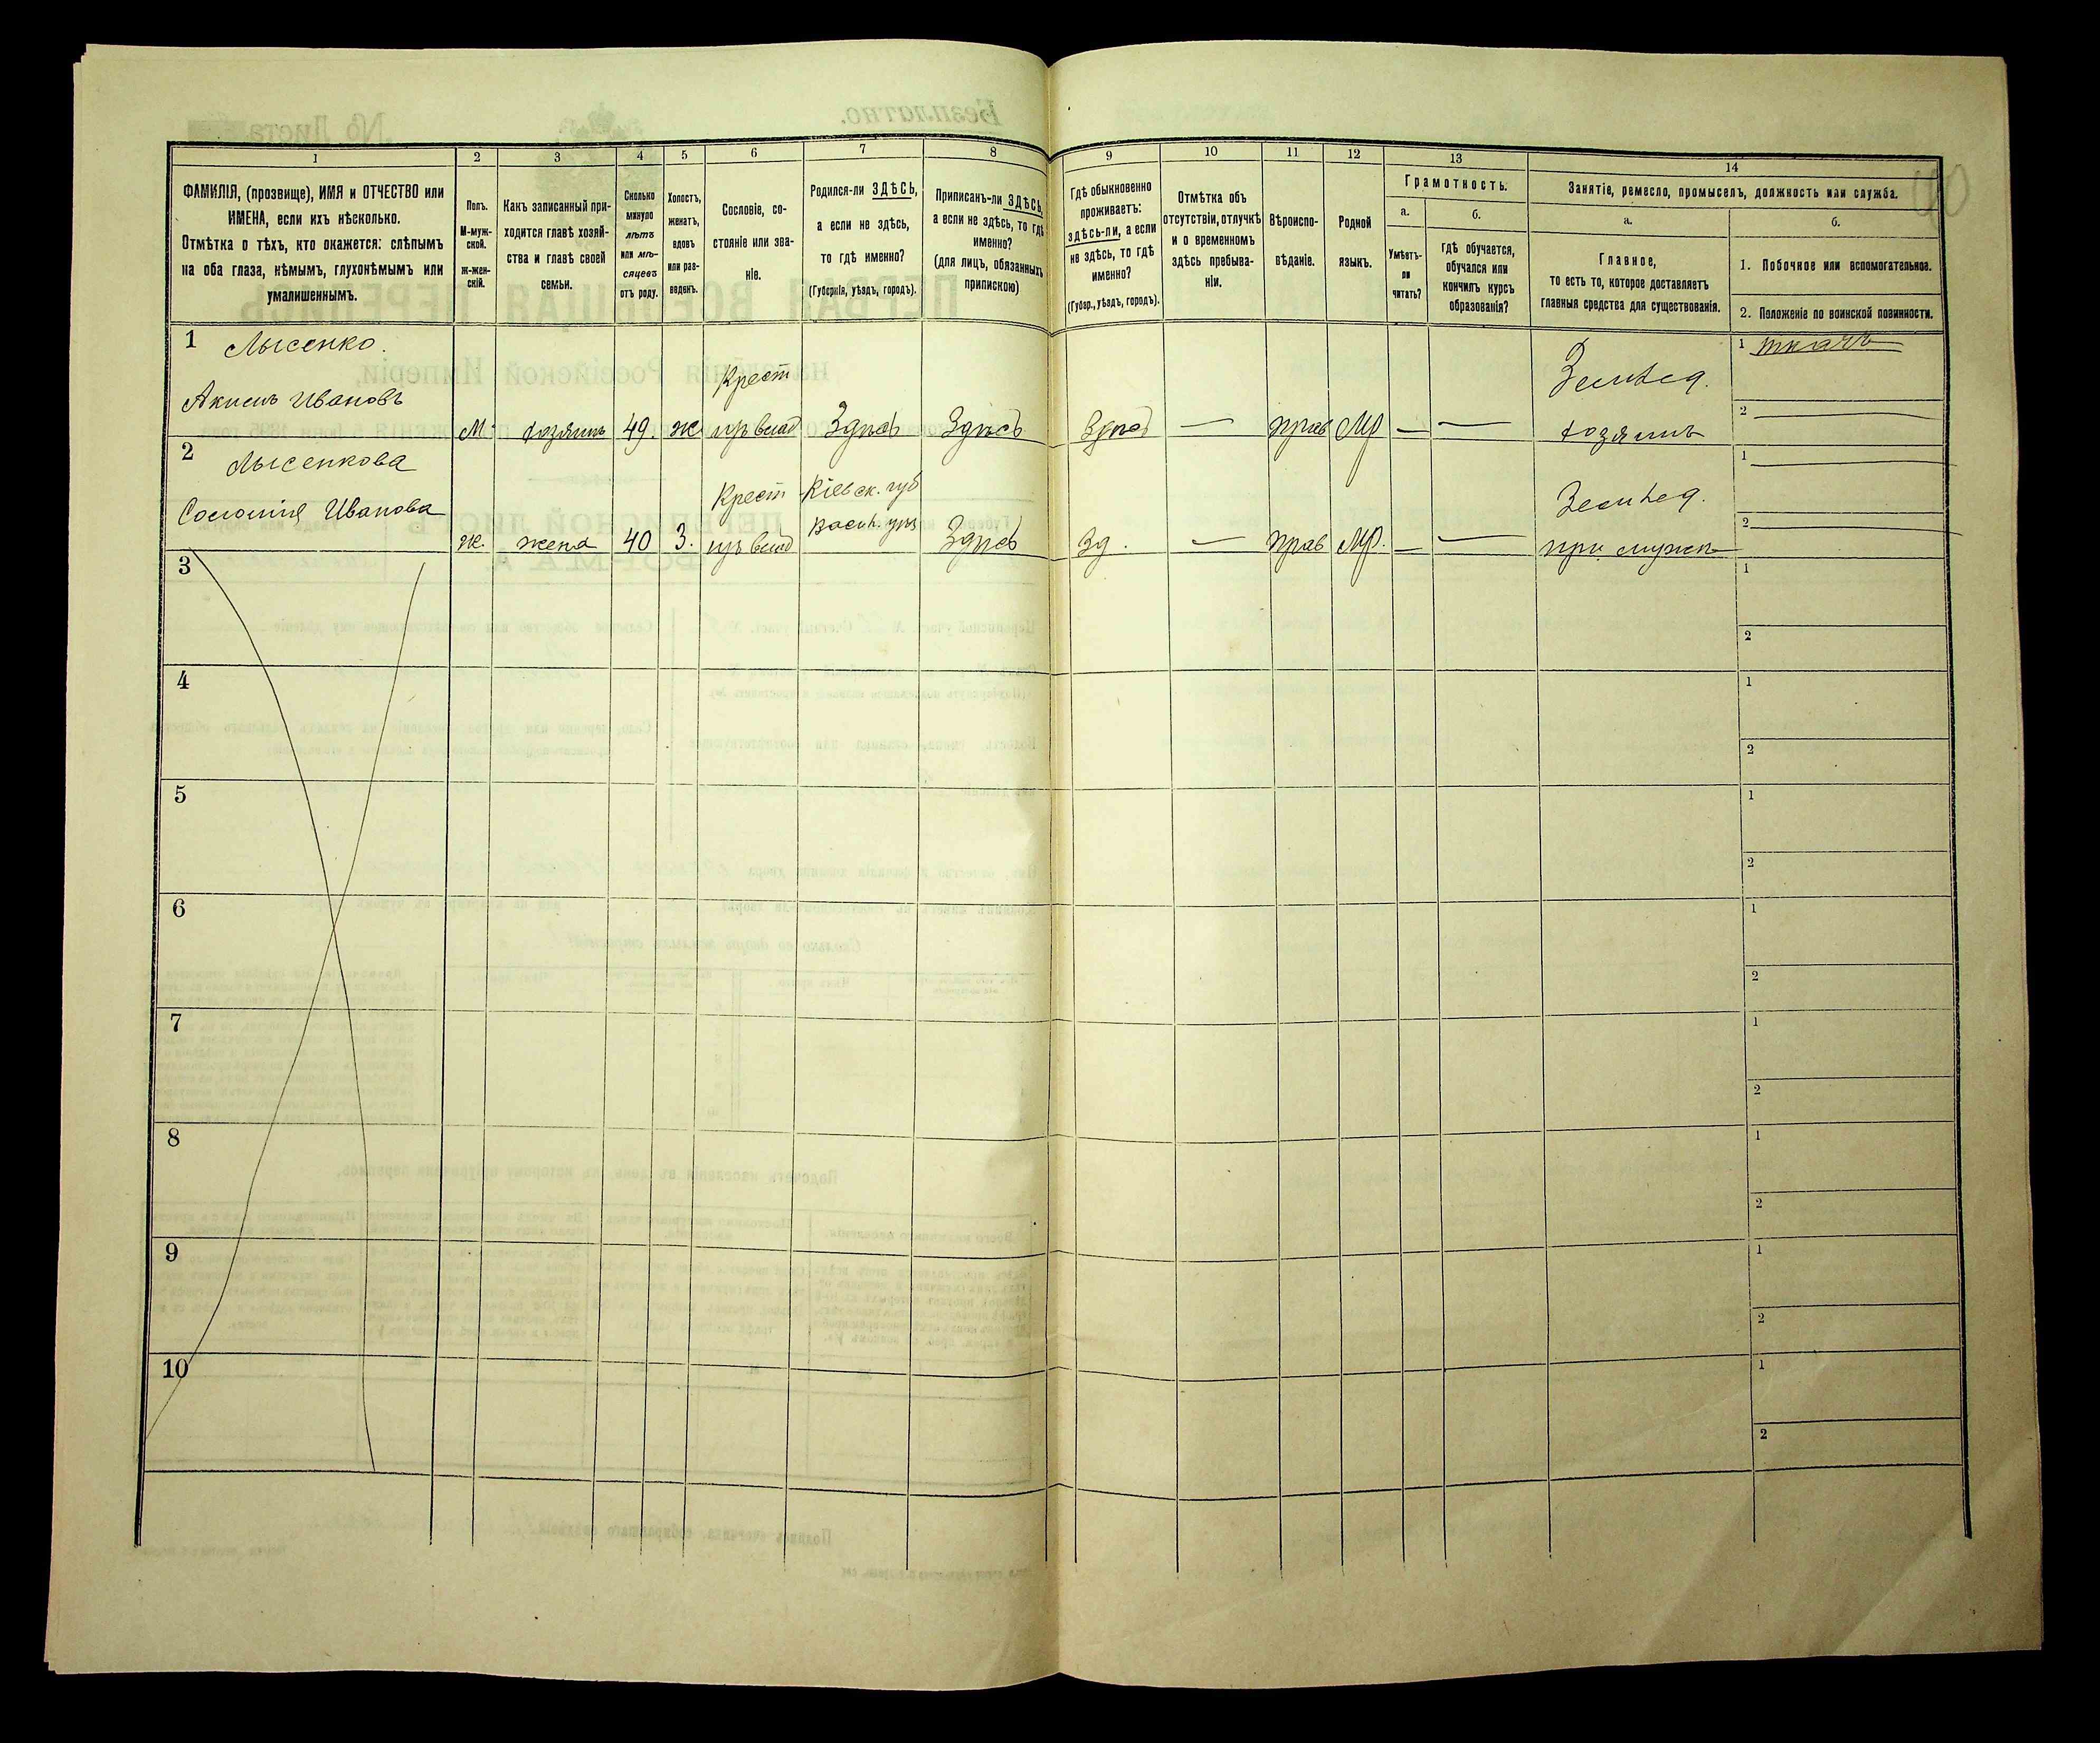 1
2
3
4
5
6
7
8
9
10
11
12
13
14
ФАМИЛІЯ, (прозвище), ИМЯ и ОТЧЕСТВО или
ИМЕНА, если ихъ нѣсколько.
Отмѣтка о тѣхъ, кто окажется: слѣпымъ
на оба глаза, нѣмымъ, глухонѣмымъ или
умалишеннымъ.
Полъ.
М-муж-
ской.
ж-жен-
скій.
Какъ записанный при-
ходится главѣ хозяй-
ства и главѣ своей
семьи.
Сколько
минуло
лѣтъ
или мѣ-
сяцевъ
отъ роду.
Холостъ,
женатъ,
вдовъ
или раз-
веденъ.
Сословіе, со-
стояніе или зва-
ніе.
Родился-ли ЗДѢСЬ,
а если не здѣсь,
то гдѣ именно?
(Губернія, уѣздъ, городъ).
Приписанъ-ли ЗДѢСЬ,
а если не здѣсь, то гдѣ
именно?
(для лицъ, обязанныхъ
припискою)
Гдѣ обыкновенно
проживаетъ:
здѣсь-ли, а если
не здѣсь, то гдѣ
именно?
(Губер., уѣздъ, городъ).
Отмѣтка объ
отсутствіи, отлучкѣ
и о временномъ
здѣсь пребыва-
ніи.
Вѣроиспо-
вѣданіе.
Родной
языкъ.
Грамотность.
а.
Умѣетъ-
ли
читать?
б.
гдѣ обучается,
обучался или
кончилъ курсъ
образованія?
Занятіе, ремесло, промыселъ, должность или служба.
а.
Главное,
то есть то, которое доставляетъ
главныя средства для существованія.
б.
1. Побочное или вспомогательное.
2. Положеніе по воинской повинности.
1 Лысенко.
Акимъ Ивановъ
М. хозяинъ 49. ж
Крест
изъ влад
Здѣсь Здѣсь Здѣсь — прав МР — —
Землед.
хозяинъ
1 ткачъ
2
2 Лысенкова
Соломія Иванова
ж. жена 40 З.
Крест
изъ влад
Кіевск. губ
Васил. уѣз
Здѣсь Зд. — прав МР. — —
Землед.
при мужѣ
1
2
3
1
2
4
1
2
5
1
2
6
1
2
7
1
2
8
1
2
9
1
2
10
1
2